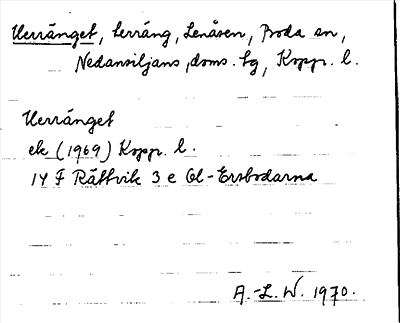 Uerränget, terräng, Lenåsen, Boda sn,
Nedansiljans doms. tg, Kopp. l.
Uerränget
ek (1969) Kopp. l.
14 F Rättvik 3 e Ol-Ersbodarna
A.-L. W. 1970.